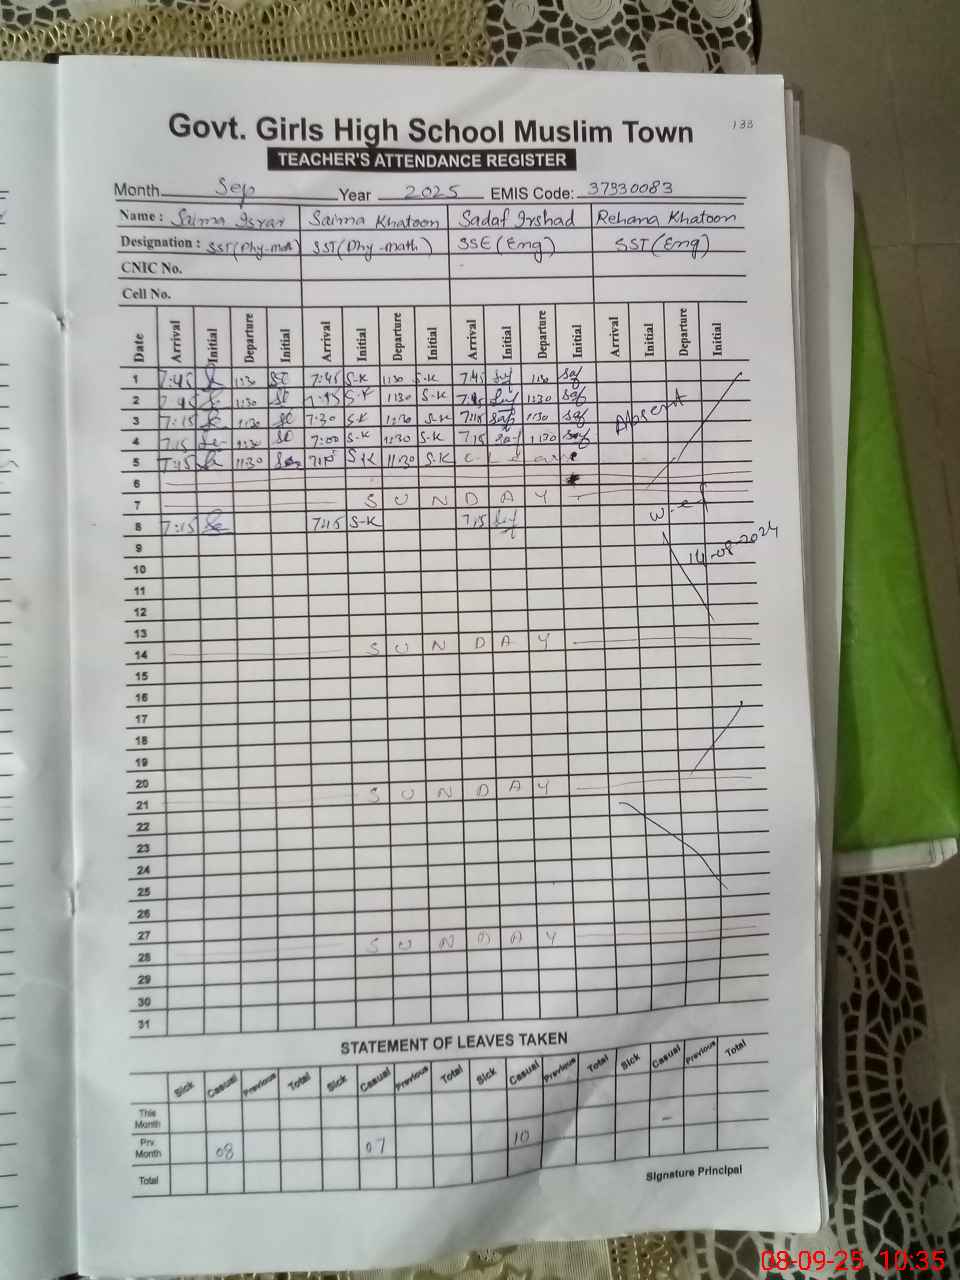 133
Govt. Girls High School Muslim Town
TEACHER'S ATTENDANCE REGISTER
Month Sep Year 2025 EMIS Code: 37330083
Name : Saima Israr Saima Khatoon Sadaf Irshad Rehana Khatoon
Designation : SST(Phy-math) SST(Phy-math) SSE(Eng) SST(Eng)
CNIC No.
Cell No.
Date Arrival Initial Departure Initial Arrival Initial Departure Initial Arrival Initial Departure Initial Arrival Initial Departure Initial
1 7:45 1:30 7:45 S-K 1:30 S-K 7:45 1:30
2 7:45 1:30 7:45 S-K 1:30 S-K 7:45 1:30
3 7:15 1:30 7:30 S-K 1:30 S-K 7:15 1:30 Absent
4 7:15 1:30 7:00 S-K 1:30 S-K 7:15 1:30
5 7:15 11:30 7:15 S-K 11:30 S-K
6
7 SUNDAY
8 7:15 7:15 S-K 7:15 w.e.f
9 14-08-2024
10
11
12
13
14 SUNDAY
15
16
17
18
19
20
21 SUNDAY
22
23
24
25
26
27
28 SUNDAY
29
30
31
STATEMENT OF LEAVES TAKEN
Sick Casual Previous Total Sick Casual Previous Total Sick Casual Previous Total Sick Casual Previous Total
This Month
Prv. Month 08 07 10
Total
Signature Principal
08-09-25 10:35